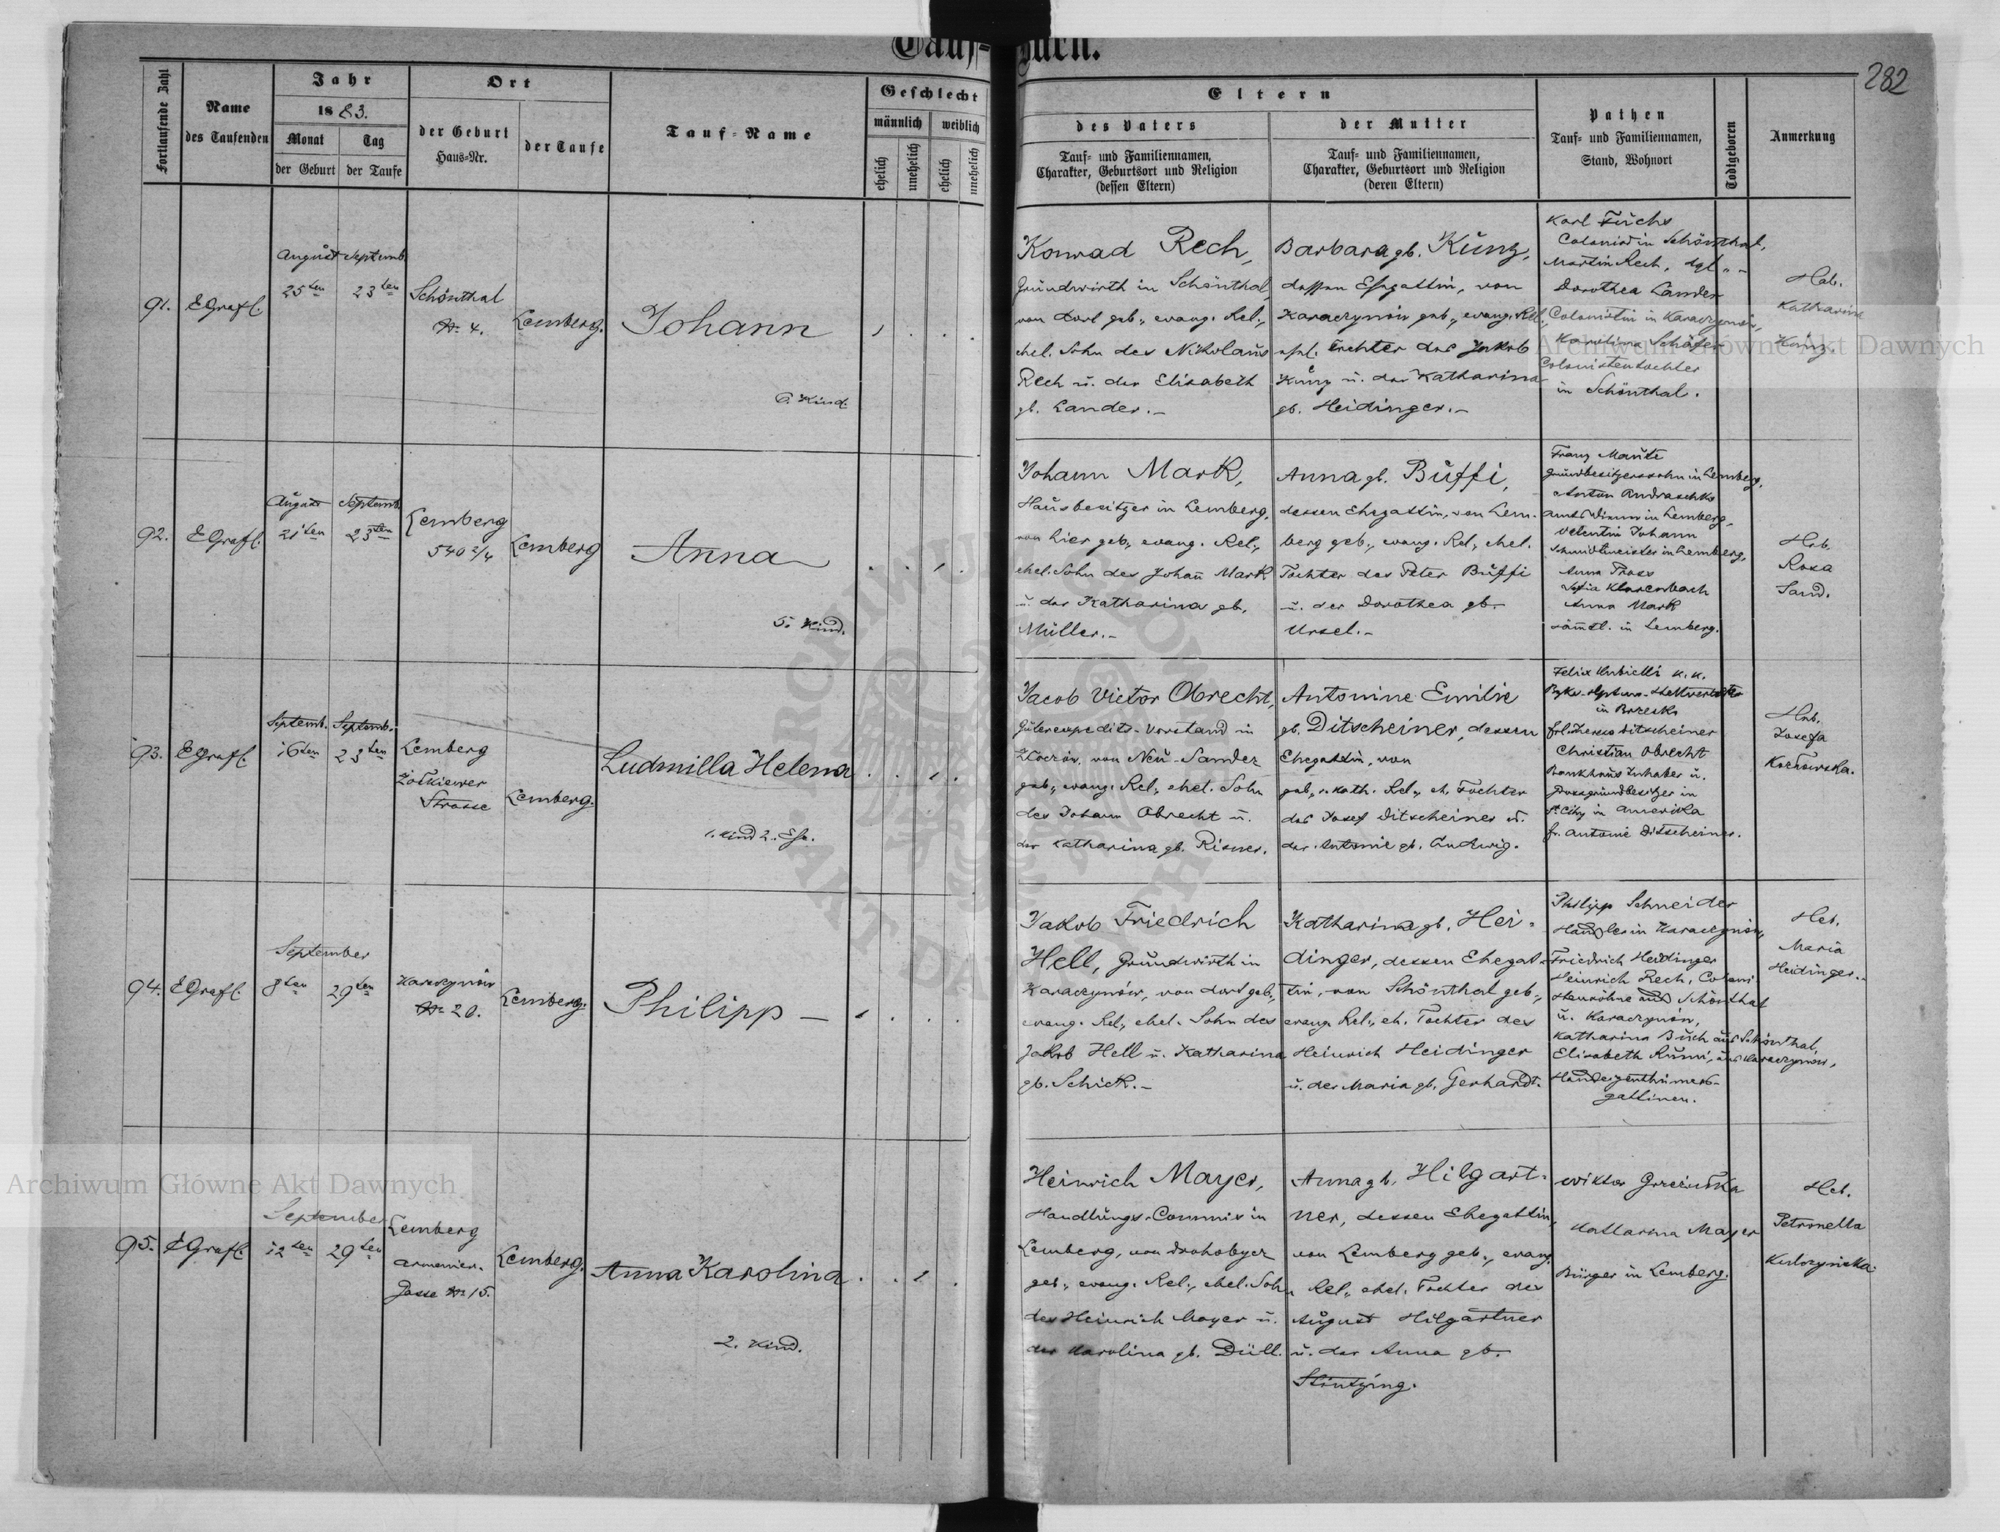 282
Fortlaufende Zahl
Name
des Taufenden
Jahr
1883.
Monat
der Geburt
Tag
der Taufe
Ort
der Geburt
Haus-Nr.
der Taufe
Tauf-Name
Geschlecht
männlich
weiblich
ehelich
unehelich
ehelich
unehelich
Eltern
des Vaters
Tauf- und Familiennamen,
Charakter, Geburtsort und Religion
(dessen Eltern)
der Mutter
Tauf- und Familiennamen,
Charakter, Geburtsort und Religion
(deren Eltern)
Pathen
Tauf- und Familiennamen,
Stand, Wohnort
Todtgeboren
Anmerkung
91.
EGrafl.
August
25ten
Septemb.
23ten
Schönthal
Nr. 4.
Lemberg.
Johann
6. Kind.
Konrad Rech,
Grundwirth in Schönthal,
von dort geb., evang. Rel.,
ehel. Sohn des Nikolaus
Rech u. der Elisabeth
gb. Lander.—
Barbara gb. Kunz,
dessen Ehegattin, von
Karaczynów geb., evang. Rel.,
ehel. Tochter des Jakob
Kunz u. der Katharina
gb. Heidinger.—
Karl Fuchs
Colonist in Schönthal,
Martin Rech, dgl. "
Dorothea Lander
Colonistin in Karaczynów,
Karolina Schäfer
Colonistentochter
in Schönthal.
Heb.
Katharina
Kunz.
92.
EGrafl.
August
21ten
Septemb.
23ten
Lemberg
540 2/4
Lemberg
Anna
5. Kind.
Johann Mark,
Hausbesitzer in Lemberg,
von hier geb., evang. Rel.,
ehel. Sohn des Johann Mark
u. der Katharina gb.
Müller.—
Anna gb. Buffi,
dessen Ehegattin, von Lem-
berg geb., evang. Rel., ehel.
Tochter des Peter Buffi
u. der Dorothea gb.
Ursel.—
Franz
Grundbesitzerssohn in Lemberg,
Anton
in Lemberg,
Valentin Johann
Schmidtmeister in Lemberg,
Anna
Sofia Klarenbach
Anna Mark
sämtl. in Lemberg.
Heb.
Rosa
Sand.
93.
EGrafl.
Septemb.
16ten
Septemb.
23ten
Lemberg
Żółkiewer
Strasse
Lemberg.
Ludmilla Helena
1. Kind 2. Ehe.
Jacob Victor Obrecht,
Güterexpedits-Vorstand in
Złoczów, von Neu-Sandez
geb., evang. Rel., ehel. Sohn
des Johann Obrecht u.
der Katharina gb. Risner.
Antonine Emilie
gb. Ditscheiner, dessen
Ehegattin, von
geb., r. kath. Rel., eh. Tochter
des Josef Ditscheiner u.
der Antonie gb. Ludwig.
Felix k. k.
in Brzesko
Frl. Theresa Ditscheiner
Christian Obrecht
Bankhaus Inhaber u.
Grossgrundbesitzer in
City in Amerika
Fr. Antonie Ditscheiner.
Heb.
Josefa
94.
EGrafl.
September
8ten
29ten
Karaczynów
Nr. 20.
Lemberg.
Philipp —
Jakob Friedrich
Hell, Grundwirth in
Karaczynów, von dort geb.,
evang. Rel., ehel. Sohn des
Jakob Hell u. Katharina
gb. Schick.—
Katharina gb. Hei-
dinger, dessen Ehegat-
tin, von Schönthal geb.,
evang. Rel., eh. Tochter des
Heinrich Heidinger
u. der Maria gb. Gerhardt.
Philipp Schneider
in Karaczynów,
Friedrich Heidinger
Heinrich Rech, Coloni-
stensöhne aus Schönthal
u. Karaczynów,
Katharina Buch aus Schönthal,
Elisabeth aus Karaczynów,
gattinen.
Heb.
Maria
Heidinger.
95.
EGrafl.
September
12ten
29ten
Lemberg
Armenier-
Gasse Nr. 15.
Lemberg.
Anna Karolina
2. Kind.
Heinrich Mayer,
Handlungs-Commis in
Lemberg, von Drohobycz
geb., evang. Rel., ehel. Sohn
des Heinrich Mayer u.
der Karolina gb. Düll.
Anna gb. Hilgart-
ner, dessen Ehegattin,
von Lemberg geb., evang.
Rel., ehel. Tochter des
August Hilgartner
u. der Anna gb.
Wiktor
Katharina Mayer
Bürger in Lemberg.
Heb.
Petronella
Archiwum Główne Akt Dawnych
Archiwum Główne Akt Dawnych